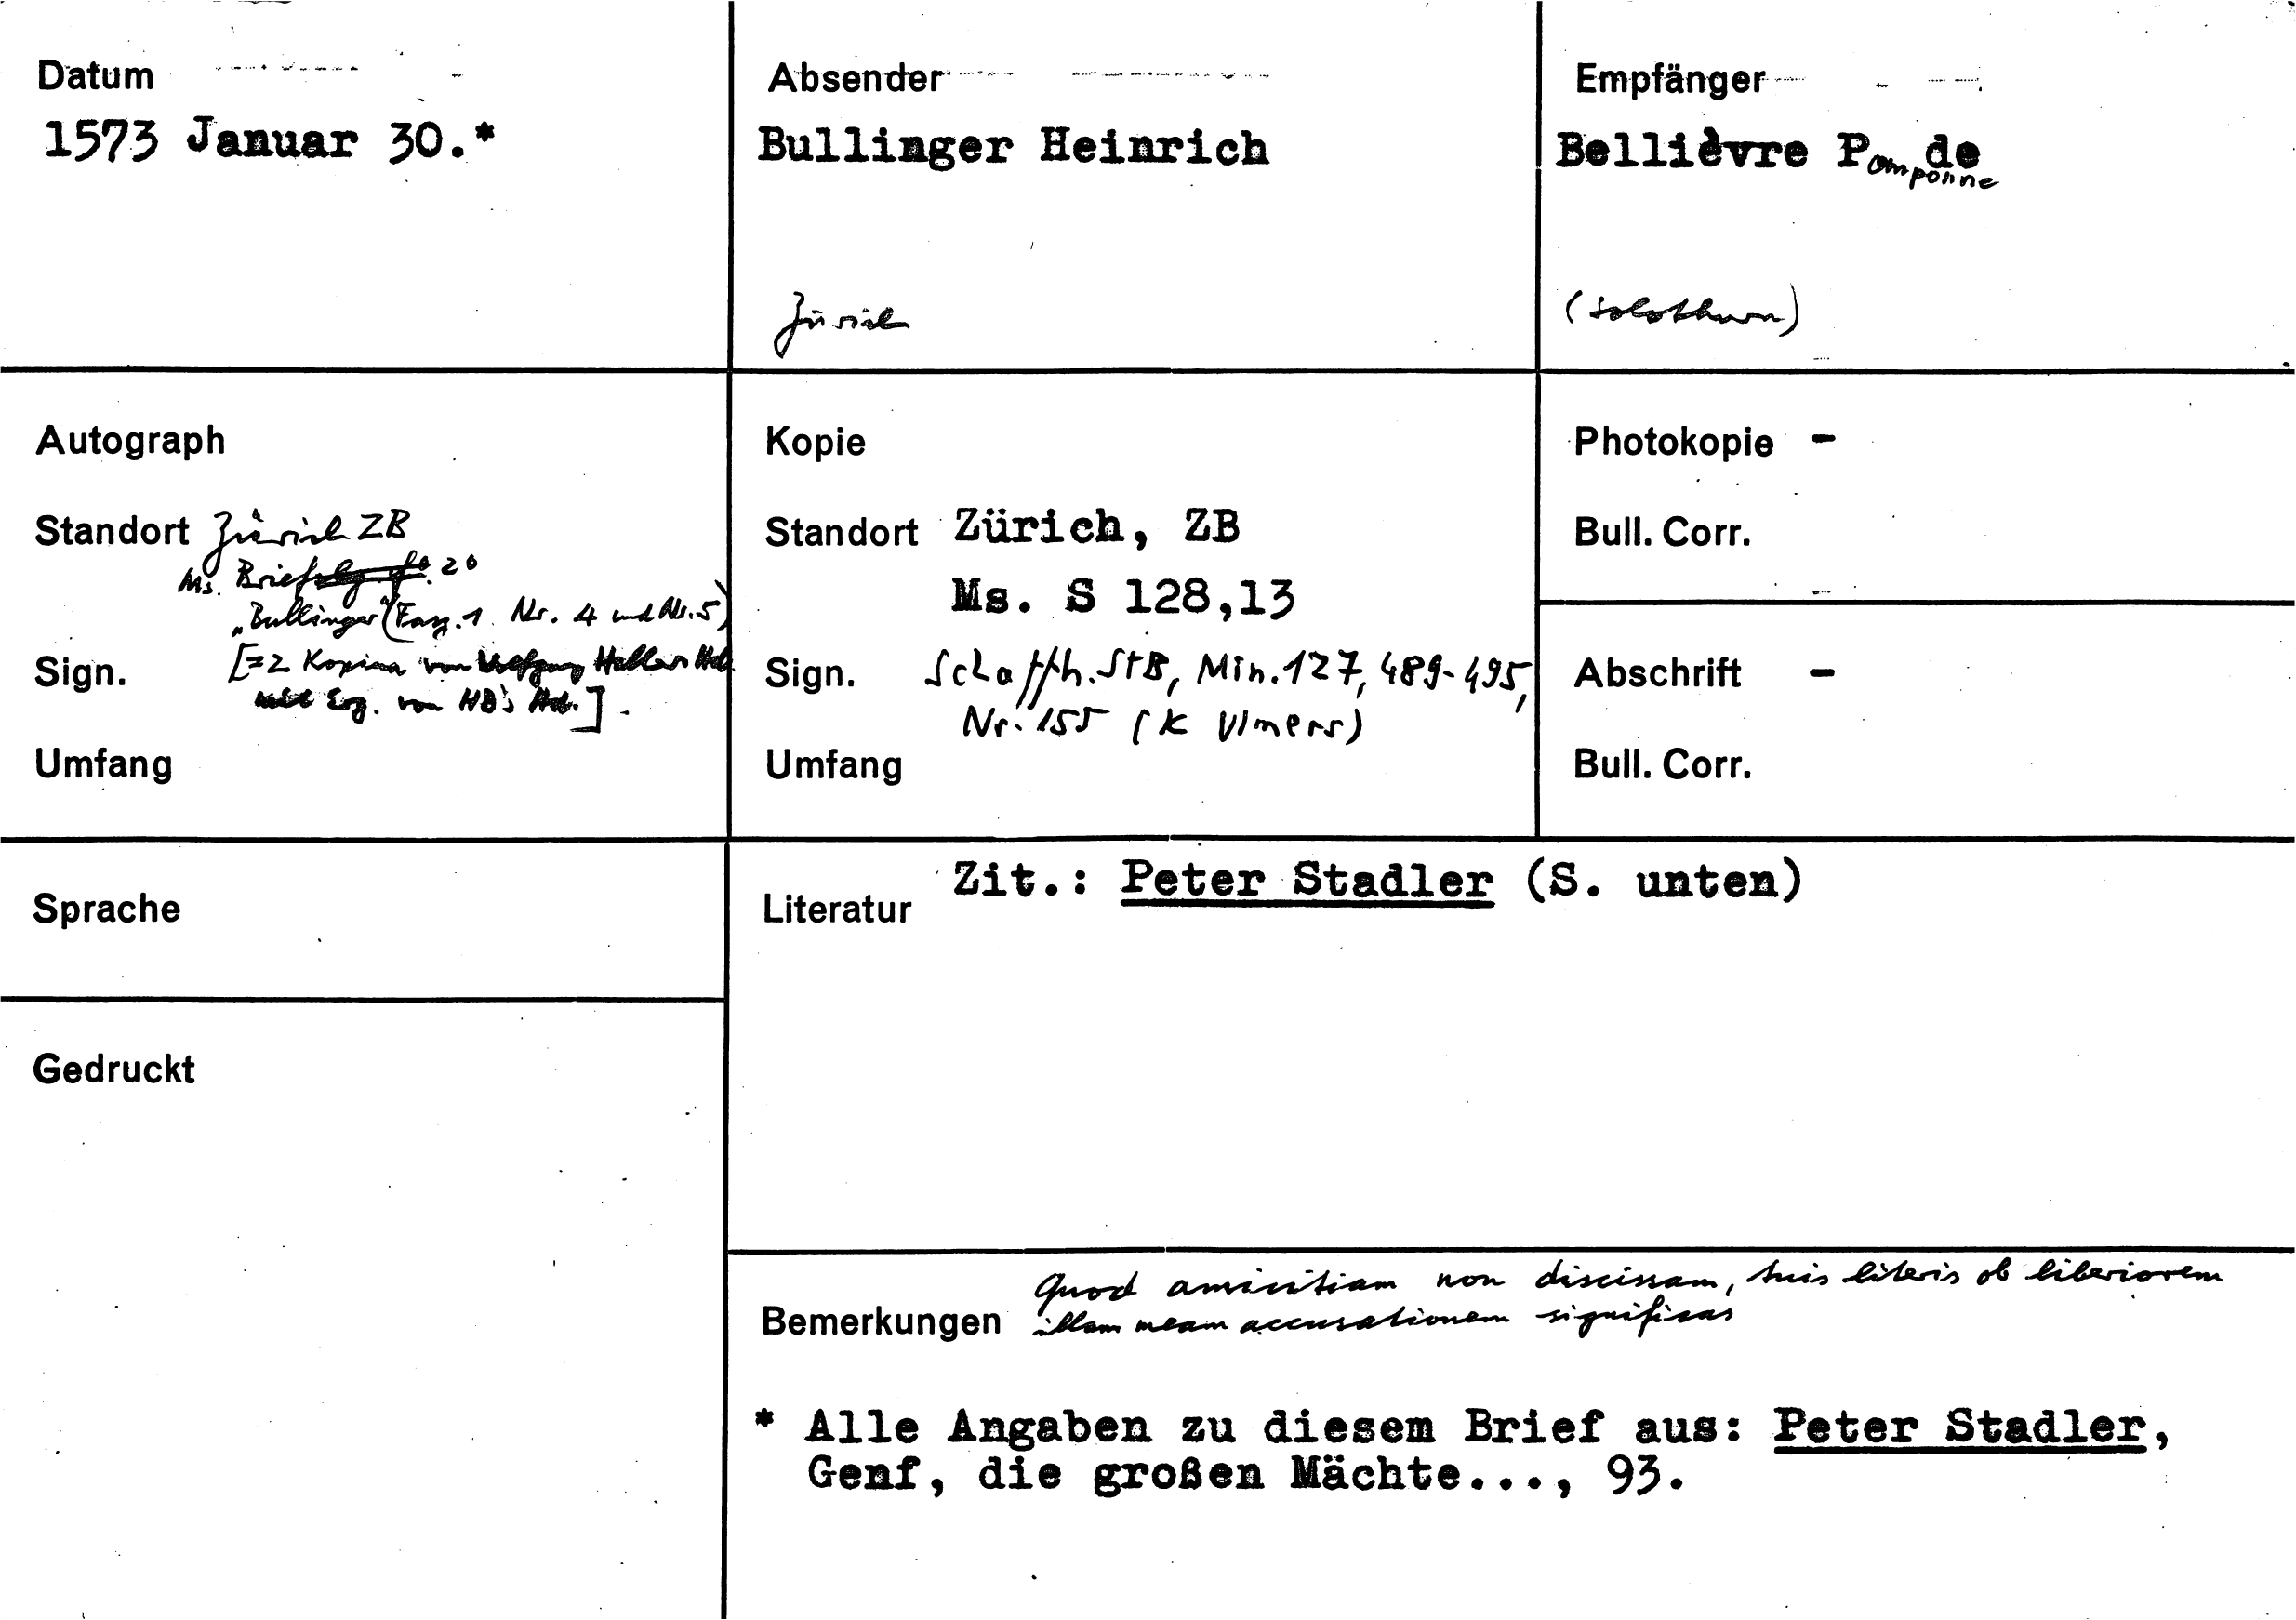 Datum
1573 Januar 30.*
Absender
Bullinger Heinrich
Zürich
Empfänger
Bellièvre Pomponne de
(Solothurn)
Autograph
Standort Zürich ZB
Ms. Brief 20
"Bullinger" (Fasz. 1 Nr. 4 und Nr. 5)
Sign. [=2 Kopien von Wolfgang Hallers Hd.
mit Erg. von HB's Hd.].
Umfang
Kopie
Standort Zürich, ZB
Ms. S 128,13
Sign. Schaffh. StB, Min. 127, 489-495,
Nr. 155 (K Ulmers)
Umfang
Photokopie -
Bull. Corr.
Abschrift -
Bull. Corr.
Sprache
Gedruckt
Literatur Zit.: Peter Stadler (S. unten)
Bemerkungen Quod amicitiam non discissam, tuis literis ob liberiorem
illam meam accusationem significas
* Alle Angaben zu diesem Brief aus: Peter Stadler,
Genf, die großen Mächte..., 93.